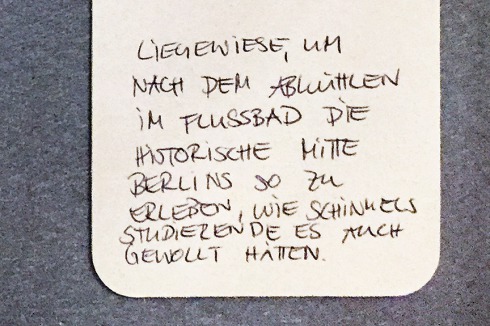 LIEGEWIESE, UM
NACH DEM ABKÜHLEN
IM FLUSSBAD DIE
HISTORISCHE MITTE
BERLINS SO ZU
ERLEBEN, WIE SCHINKELS
STUDIERENDE ES AUCH
GEWOLLT HÄTTEN.